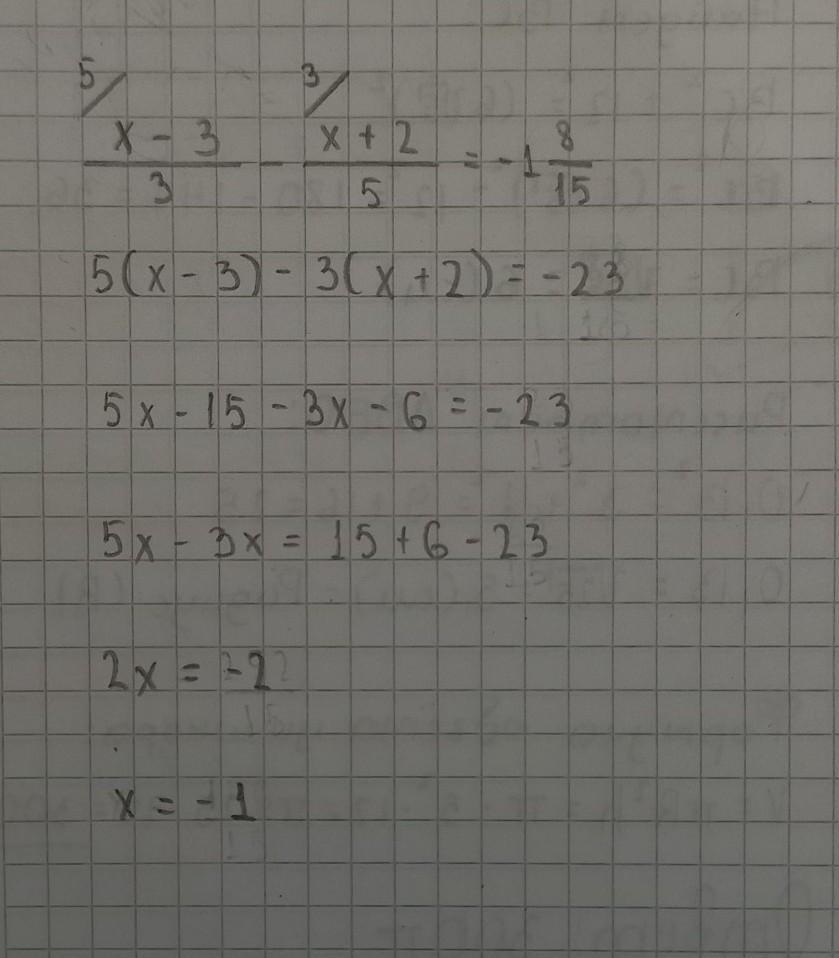 5/ 3/
x - 3/3 - x + 2/5 = -1 8/15
5(x - 3) - 3(x + 2) = -23
5x - 15 - 3x - 6 = -23
5x - 3x = 15 + 6 - 23
2x = -2
x = -1